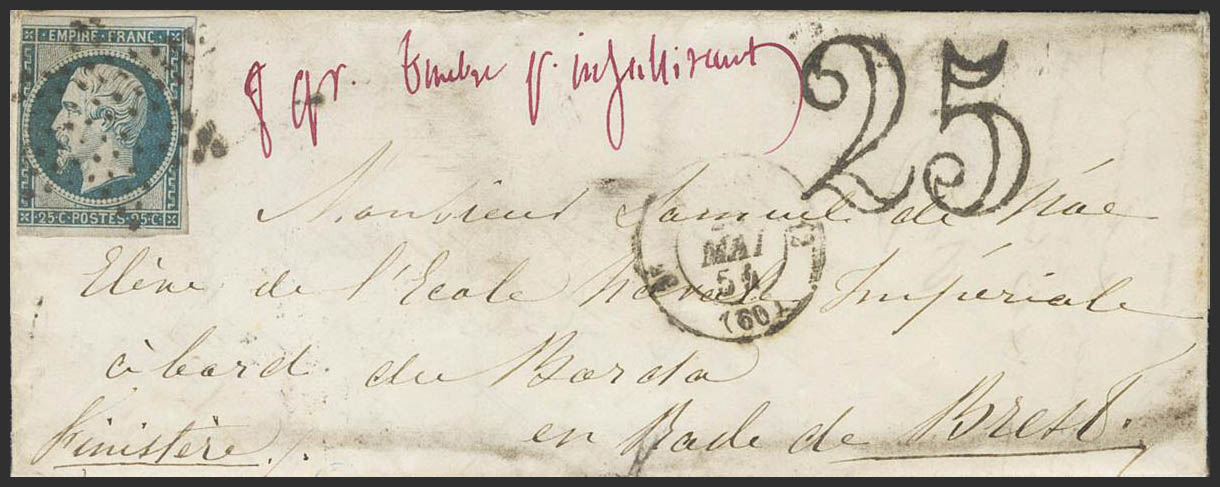 EMPIRE·FRANC·
25·C·POSTES·25·C·
8 gr. timbre p. insuffisant
25
MAI
54
(60)
Monsieur Samuel de
Elève de l'Ecole Navale Impériale
à bord du Borda
en Rade de Brest.
Finistère